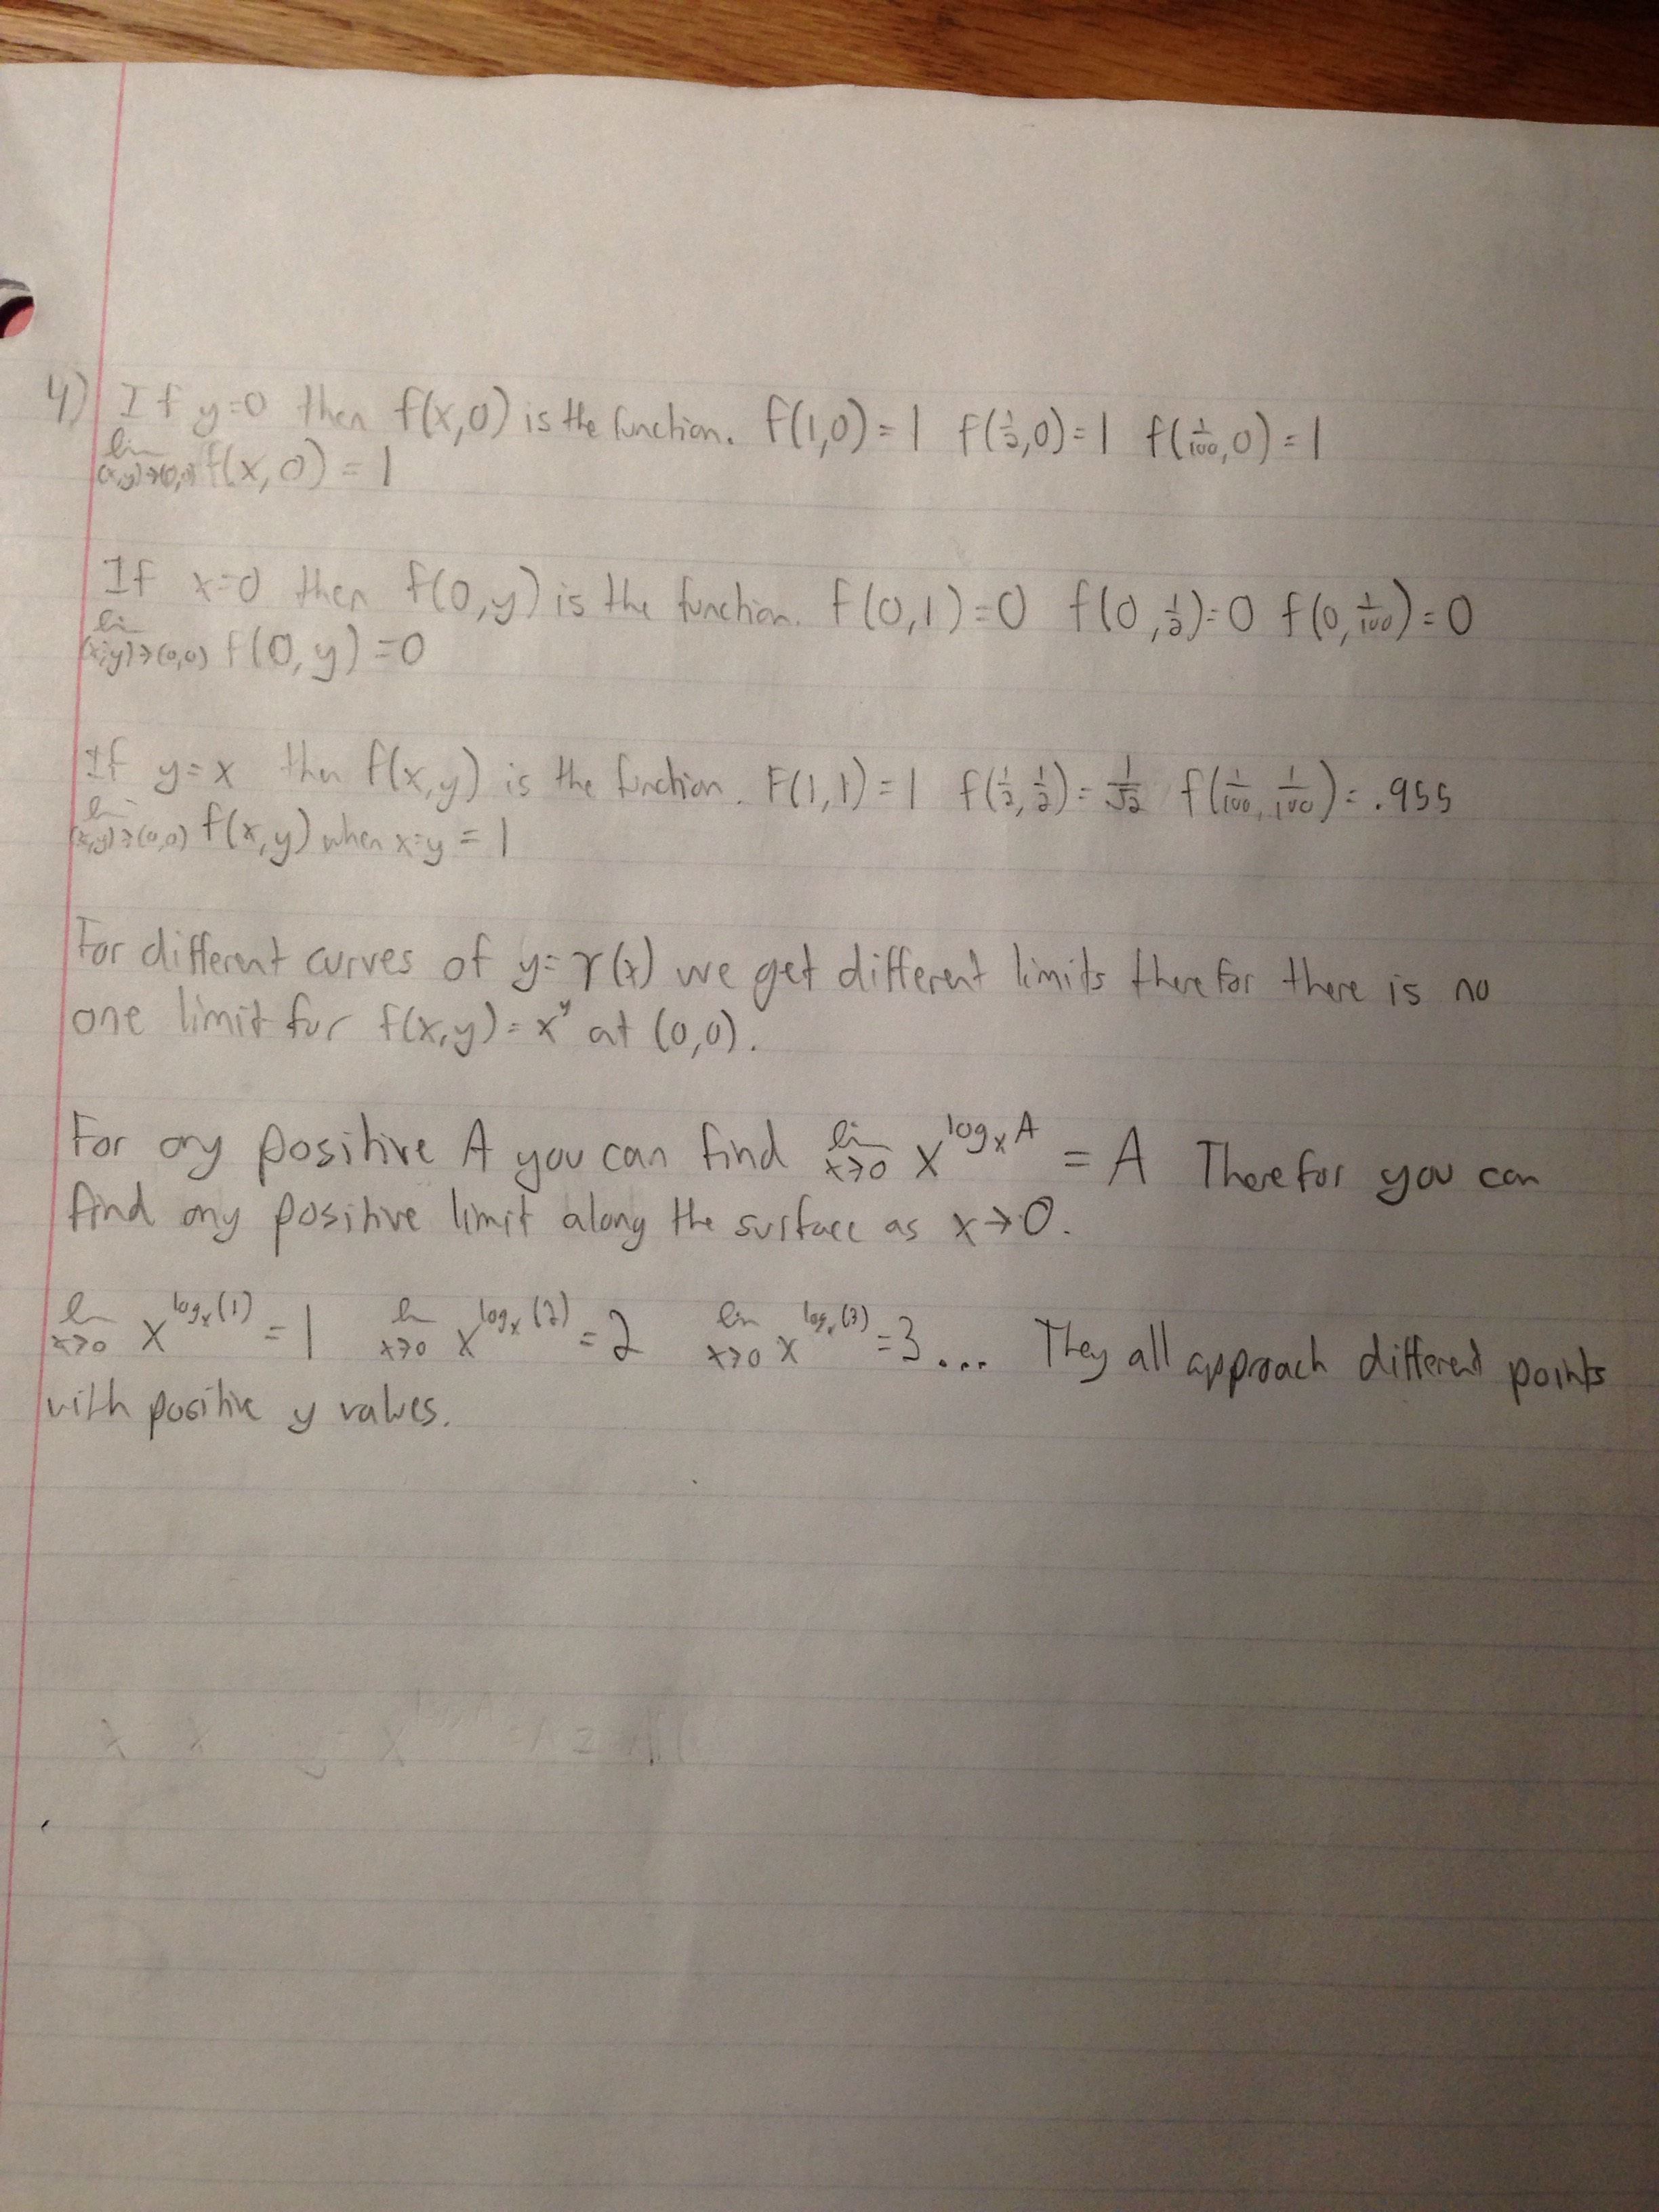 4) If y=0 then f(x,0) is the function. f(1,0)=1 f(1/2,0)=1 f(1/100,0)=1
lim (x,y)→(0,0) f(x,0)=1
If x=0 then f(0,y) is the function. f(0,1)=0 f(0,1/2)=0 f(0,1/100)=0
lim (x,y)→(0,0) f(0,y)=0
If y=x then f(x,y) is the function. F(1,1)=1 f(1/2,1/2)=1/√2 f(1/100,1/100)=.955
lim (x,y)→(0,0) f(x,y) when x=y = 1
For different curves of y=γ(x) we get different limits therefor there is no
one limit for f(x,y)=x^y at (0,0).
For any positive A you can find lim x→0 x^(log_x A) = A Therefor you can
find any positive limit along the surface as x→0.
lim x→0 x^(log_x(1)) = 1 lim x→0 x^(log_x(2)) = 2 lim x→0 x^(log_x(3)) = 3... They all approach different points
with positive y values.